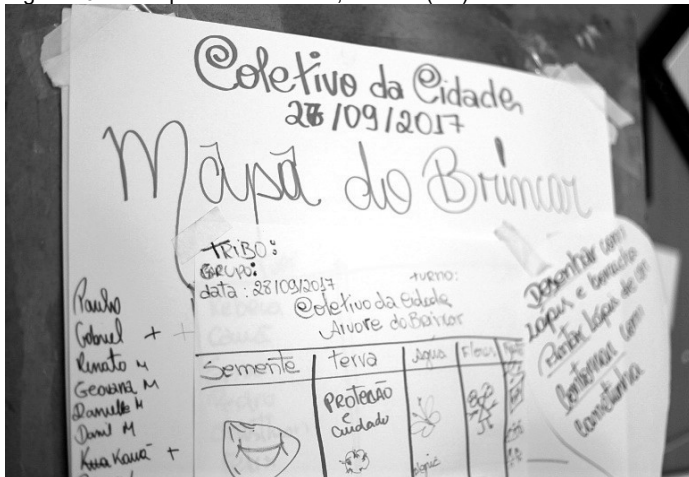 Coletivo da Cidade
26/09/2017
Mapa do Brincar
TRIBO:
GRUPO:
turno:
data: 28/09/2017
Coletivo da Cidade
Arvore do Brincar
Semente
terra
Agua
Flores
PROTECÃO
e
Cuidado
Paulho
Gabriel +
Renato M
Geovana M
Danielle M
Daniel M
Kauã +
Desenhar com
Lápis e borracha
Pintar Lápis de cor
Contornar com
Canetinha